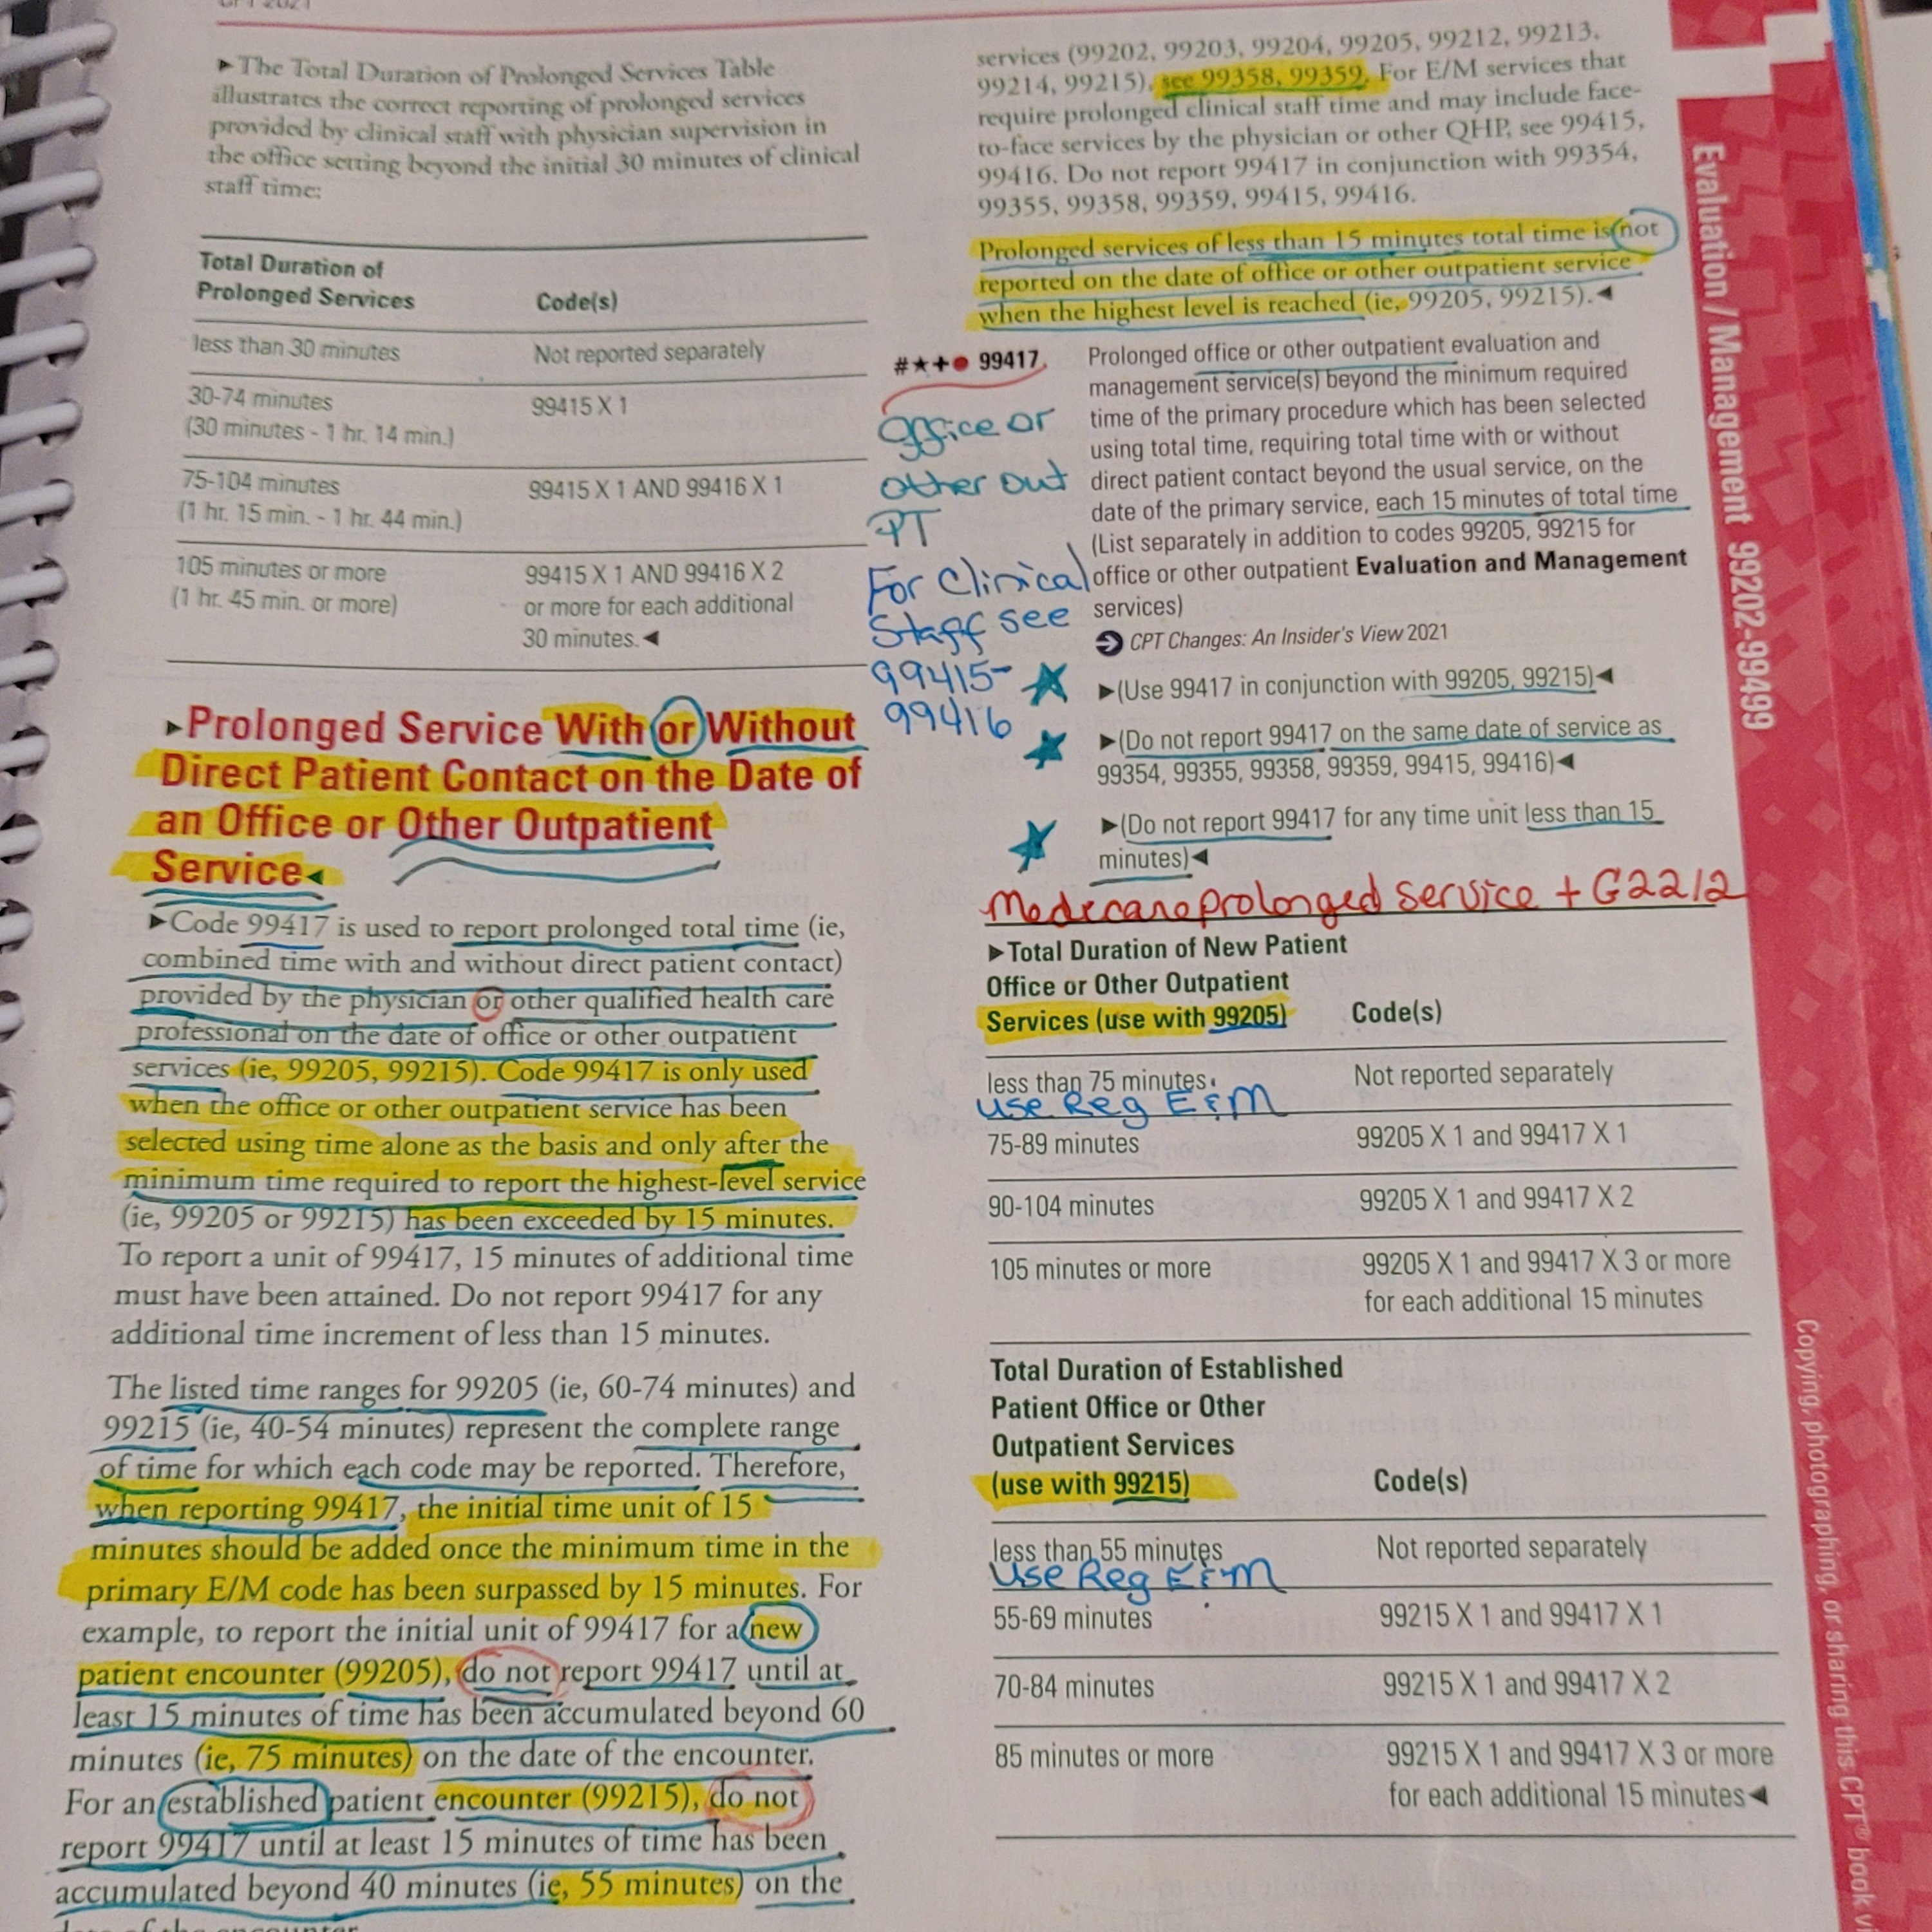 CPT 2021
►The Total Duration of Prolonged Services Table
illustrates the correct reporting of prolonged services
provided by clinical staff with physician supervision in
the office setting beyond the initial 30 minutes of clinical
staff time:
Total Duration of
Prolonged Services Code(s)
less than 30 minutes Not reported separately
30-74 minutes 99415 X 1
(30 minutes - 1 hr. 14 min.)
75-104 minutes 99415 X 1 AND 99416 X 1
(1 hr. 15 min. - 1 hr. 44 min.)
105 minutes or more 99415 X 1 AND 99416 X 2
(1 hr. 45 min. or more) or more for each additional
30 minutes.◄
►Prolonged Service With or Without
Direct Patient Contact on the Date of
an Office or Other Outpatient
Service◄
►Code 99417 is used to report prolonged total time (ie,
combined time with and without direct patient contact)
provided by the physician or other qualified health care
professional on the date of office or other outpatient
services (ie, 99205, 99215). Code 99417 is only used
when the office or other outpatient service has been
selected using time alone as the basis and only after the
minimum time required to report the highest-level service
(ie, 99205 or 99215) has been exceeded by 15 minutes.
To report a unit of 99417, 15 minutes of additional time
must have been attained. Do not report 99417 for any
additional time increment of less than 15 minutes.
The listed time ranges for 99205 (ie, 60-74 minutes) and
99215 (ie, 40-54 minutes) represent the complete range
of time for which each code may be reported. Therefore,
when reporting 99417, the initial time unit of 15
minutes should be added once the minimum time in the
primary E/M code has been surpassed by 15 minutes. For
example, to report the initial unit of 99417 for a new
patient encounter (99205), do not report 99417 until at
least 15 minutes of time has been accumulated beyond 60
minutes (ie, 75 minutes) on the date of the encounter.
For an established patient encounter (99215), do not
report 99417 until at least 15 minutes of time has been
accumulated beyond 40 minutes (ie, 55 minutes) on the
date of the encounter.
services (99202, 99203, 99204, 99205, 99212, 99213,
99214, 99215), see 99358, 99359. For E/M services that
require prolonged clinical staff time and may include face-
to-face services by the physician or other QHP, see 99415,
99416. Do not report 99417 in conjunction with 99354,
99355, 99358, 99359, 99415, 99416.
Prolonged services of less than 15 minutes total time is not
reported on the date of office or other outpatient service
when the highest level is reached (ie, 99205, 99215).◄
#★+● 99417 Prolonged office or other outpatient evaluation and
management service(s) beyond the minimum required
time of the primary procedure which has been selected
using total time, requiring total time with or without
direct patient contact beyond the usual service, on the
date of the primary service, each 15 minutes of total time
(List separately in addition to codes 99205, 99215 for
office or other outpatient Evaluation and Management
services)
Office or
other out
PT
For Clinical
Staff see
99415-
99416
CPT Changes: An Insider's View 2021
►(Use 99417 in conjunction with 99205, 99215)◄
►(Do not report 99417 on the same date of service as
99354, 99355, 99358, 99359, 99415, 99416)◄
►(Do not report 99417 for any time unit less than 15
minutes)◄
Medicare prolonged service + G2212
►Total Duration of New Patient
Office or Other Outpatient
Services (use with 99205) Code(s)
less than 75 minutes Not reported separately
use Reg E&M
75-89 minutes 99205 X 1 and 99417 X 1
90-104 minutes 99205 X 1 and 99417 X 2
105 minutes or more 99205 X 1 and 99417 X 3 or more
for each additional 15 minutes
Total Duration of Established
Patient Office or Other
Outpatient Services
(use with 99215) Code(s)
less than 55 minutes Not reported separately
Use Reg E&M
55-69 minutes 99215 X 1 and 99417 X 1
70-84 minutes 99215 X 1 and 99417 X 2
85 minutes or more 99215 X 1 and 99417 X 3 or more
for each additional 15 minutes◄
Evaluation / Management 99202-99499
Copying, photographing, or sharing this CPT® book